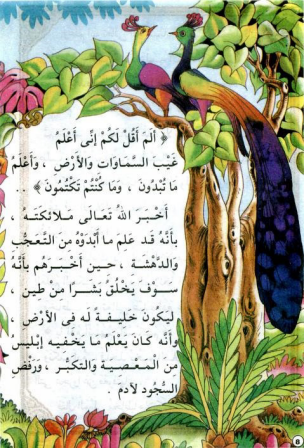 ﴿ أَلَمْ أَقُلْ لَكُمْ إِنِّى أَعْلَمُ
غَيْبَ السَّمَاوَاتِ وَالأَرْضِ ، وَأَعْلَمُ
مَا تُبْدُونَ ، وَمَا كُنْتُمْ تَكْتُمُونَ ﴾ ..
أَخْبَرَ اللهُ تَعَالَى مَلَائكَتَه ،
بأَنَّهُ قَد عَلمَ ما أَبْدَوْهُ منَ التَّعَجُّب
وَالدَّهْشَة ، حـين أَخْبَرَهُم بأَنَّهُ
سَـوْفَ يَخْلُقُ بَشَـرًا مـنْ طين ،
ليَكُونَ خَليفَـةً لَه فى الأَرْض ،
وَأَنَّه كَانَ يَعْلَمُ مَا يَخْفيـه إبْليسُ
منَ الـمَعْصيَـة وَالتكَبُّر ، وَرَفْض
السُّجُود لآدمَ .